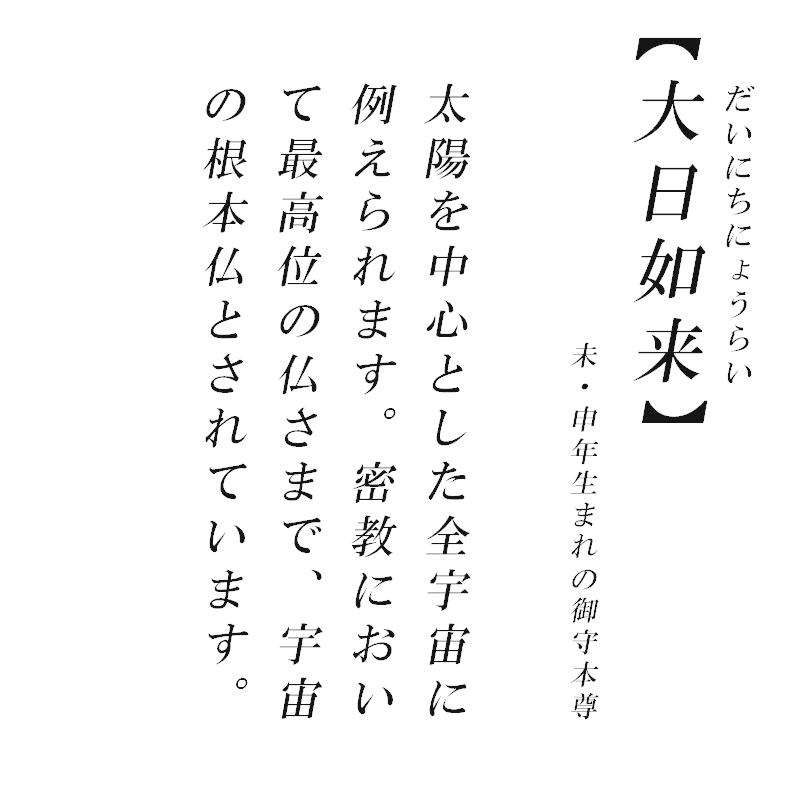 だいにちにょうらい
【大日如来】
未・申年生まれの御守本尊
太陽を中心とした全宇宙に
例えられます。密教におい
て最高位の仏さまで、宇宙
の根本仏とされています。